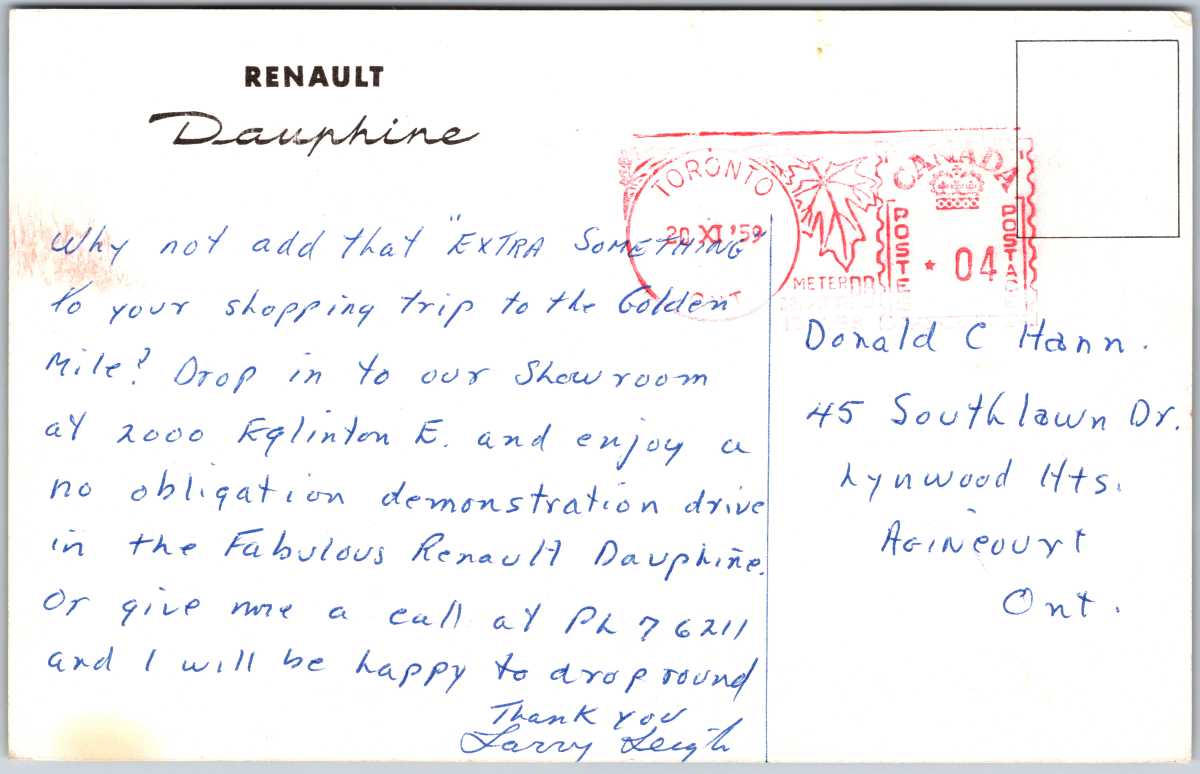 RENAULT
Dauphine
TORONTO
20 XI '59
ONT
METER
CANADA
POSTE
POSTAGE
* 04
Why not add that "EXTRA SOMETHING"
to your shopping trip to the Golden
Mile? Drop in to our Showroom
at 2000 Eglinton E. and enjoy a
no obligation demonstration drive
in the Fabulous Renault Dauphine.
Or give me a call at PL 7 6211
and I will be happy to drop round
Thank you
Larry Leigh
Donald C Hann.
45 Southlawn Dr.
Lynwood Hts.
Agincourt
Ont.